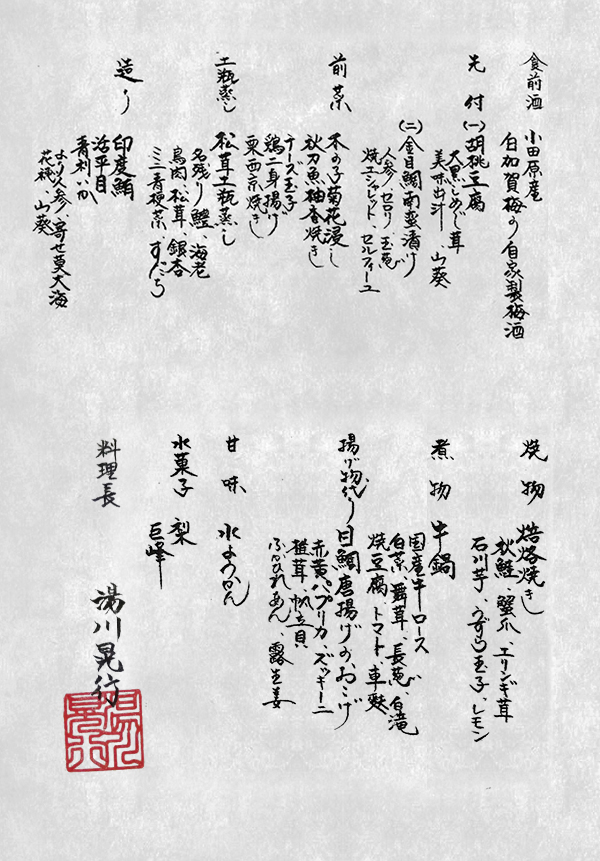 食前酒 小田原産
白加賀梅の自家製梅酒
先付 (一)胡桃豆腐
大黒しめじ茸
美味出汁 山葵
(二)金目鯛南蛮漬け
人参、セロリ、玉葱
焼エシャレット、セルフィーユ
前菜 木の子菊花浸し
秋刀魚柚香焼き
チーズ玉子
鶏二身揚げ
栗西京焼き
土瓶蒸し 松茸土瓶蒸し
名残り鱧、海老
鳥肉、松茸、銀杏
ミニ青梗菜、すだち
造り 印度鮪
活平目
青利いか
より人参、寄せ莫大海
花穂、山葵
焼物 焙烙焼き
秋鮭、蟹爪、エリンギ茸
石川芋、うずら玉子、レモン
煮物 牛鍋
国産牛ロース
白菜、舞茸、長葱、白滝
焼豆腐、トマト、車麩
揚げ物代り 目鯛唐揚げのおこげ
赤黄パプリカ、ズッキーニ
椎茸、帆立貝
ふかひれあん、露生姜
甘味 水ようかん
水菓子 梨
巨峰
料理長 湯川晃行